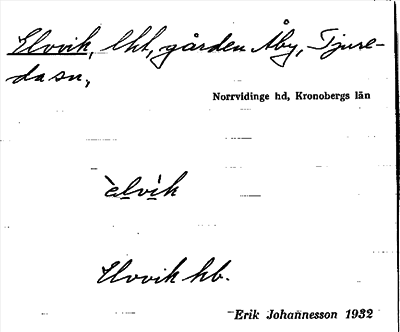 Elovik, lht, gården Åby, Tjure-
da sn,
Norrvidinge hd, Kronobergs län
èlvìk
Elovik hb.
Erik Johannesson 1932